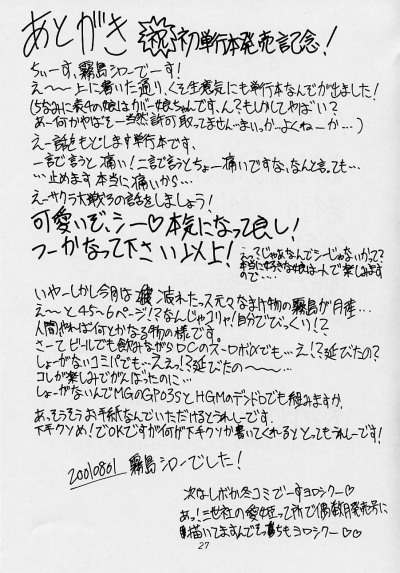 あとがき 祝 初単行本発売記念！
ちぃーす、霧島シローでーす！
え～～上に書いた通り、くそ生意気にも単行本なんぞが出ました！
(ちなみに表4の娘はカバー娘ちゃんです、ん？もしかしてやばい？
あー何かやばそー当然許可取ってません…まいっか…よくねーか…)
えー話をもどします単行本です、
一言で言うと痛い！二言で言うとちょー痛いですな、なんと言っても…
…止めます本当に痛いから…
えーサクラ大戦3の話をしましょう！
可愛いぞ、シー♡本気になって良し！
つーかなって下さい以上！
えっ？じゃあなんでシーじゃないかって？
本当に好きな娘は一人で楽しみます
ので…
いやーしかし今月は疲れたっス元々なまけ物の霧島が月産…
え～と45～6ページ！？なんじゃコリャ！自分でびっくり！？
人間やれば何とかなる物の様です。
さーてビールでも飲みながらDCのスーロボαでも…え！？延びたの？
しょーがないコミパでも…ええっ？延びたの～～～…
コレが楽しみでがんばったのに…
しょーがないんでMGのGP03SとHGMのデンドロでも組みますか、
あっそうそうお手紙なんていただけるとうれしーです。
下手クソめ！でOKですが何が下手クソか書いてくれるととってもうれしーです！
20010801 霧島シローでした！
次はしがないか冬コミでーすヨロシクー♡
あっ！三世社の愛姫って所で偶数月発売号に
描いてますんでそっちもヨロシク～♡♡
27